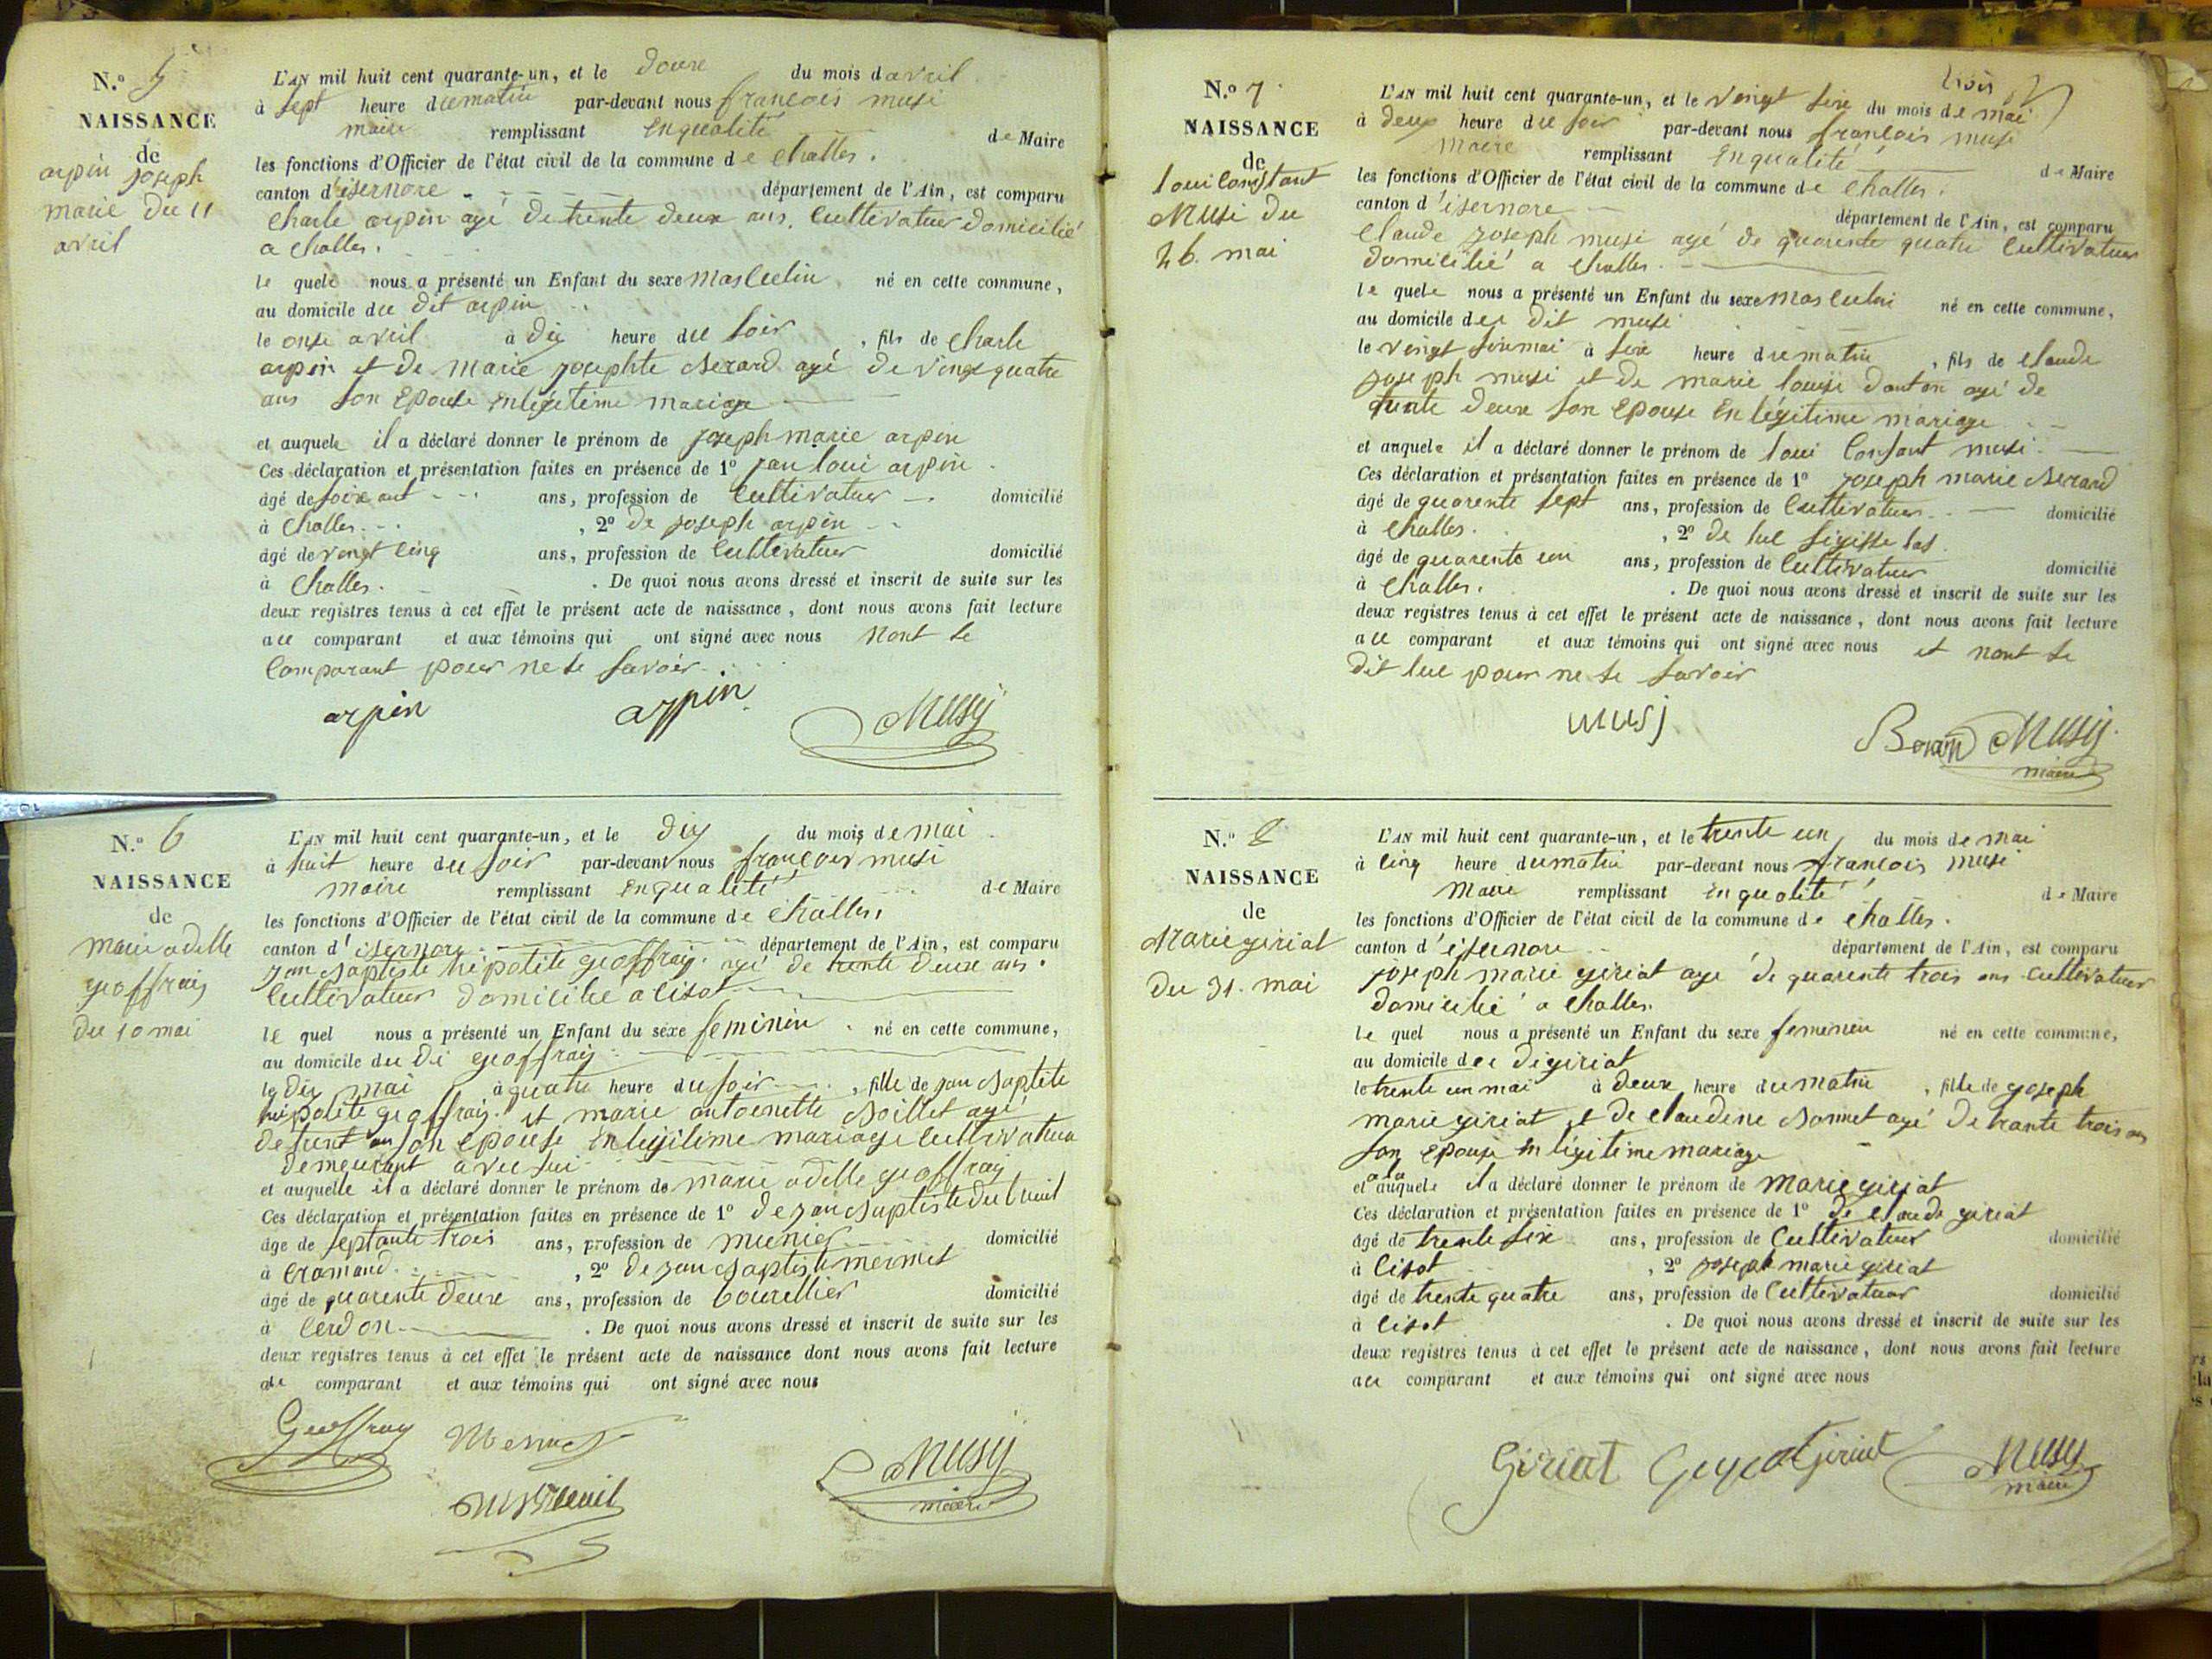 N.º 5
NAISSANCE
de
arpin joseph
marie du 11
avril
L'AN mil huit cent quarante-un, et le douze du mois d avril
à sept heure du matin par-devant nous francois musi
maire remplissant enqualité de Maire
les fonctions d'Officier de l'état civil de la commune de challes.
canton d'isernore département de l'Ain, est comparu
charle arpin agé de trente deux ans, cultivateur domicilié
a challes.
le quele nous a présenté un Enfant du sexe masculin né en cette commune,
au domicile du dit arpin
le onze avril à dix heure du soir, fils de charle
arpin et de marie josephte Berard agé de vingt quatre
ans son epouse enlégitime mariage
et auquele il a déclaré donner le prénom de joseph marie arpin
Ces déclaration et présentation faites en présence de 1º jan loui arpin
âgé de soixant ans, profession de cultivateur domicilié
à challes. , 2º de joseph arpin
âgé de vingt cinq ans, profession de cultivateur domicilié
à challes. . De quoi nous avons dressé et inscrit de suite sur les
deux registres tenus à cet effet le présent acte de naissance, dont nous avons fait lecture
au comparant et aux témoins qui ont signé avec nous nont le
comparant pour ne le savoir.
arpin arpin Musy
N.º 6
NAISSANCE
de
marie adelle
geoffray
du 10 mai
L'AN mil huit cent quarante-un, et le dix du mois de mai
à huit heure du soir par-devant nous françois musi
maire remplissant enqualité de Maire
les fonctions d'Officier de l'état civil de la commune de challes,
canton d'isernore département de l'Ain, est comparu
jean Baptiste hipolite geoffray. agé de trente deux ans.
cultivateur domicilié a lisot
le quel nous a présenté un Enfant du sexe feminin, né en cette commune,
au domicile du di geoffray
le dix mai à quatre heure du soir, fille de jan Baptite
hipolite geoffray. et marie antoenette Boillet agé
de trent ans son epouse enlegitime mariage cultivateur
demeurant avec lui
et auquelle il a déclaré donner le prénom de marie adelle geoffray
Ces déclaration et présentation faites en présence de 1º de jan Baptiste dutreuil
âgé de septante trois ans, profession de munier domicilié
à cramand. , 2º de jan Baptiste mermet
âgé de quarente deux ans, profession de bourellier domicilié
à cerdon . De quoi nous avons dressé et inscrit de suite sur les
deux registres tenus à cet effet le présent acte de naissance dont nous avons fait lecture
au comparant et aux témoins qui ont signé avec nous
Geoffray Mermet
Musy
maire
N.º 7
NAISSANCE
de
loui constant
Musi du
26. mai
L'AN mil huit cent quarante-un, et le vingt sixe du mois de mai
à deux heure du soir par-devant nous francois musi
maire remplissant enqualité de Maire
les fonctions d'Officier de l'état civil de la commune de challes.
canton d'isernore département de l'Ain, est comparu
claude joseph musi agé de quarente quatre cultivateur
domicilié a challes.
le quele nous a présenté un Enfant du sexe masculin né en cette commune,
au domicile du dit musi
le vingt sixe mai à sixe heure du matin, fils de claude
joseph musi et de marie louise danton agé de
trente deux son epouse en légitime mariage
et auquele il a déclaré donner le prénom de loui Constant musi
Ces déclaration et présentation faites en présence de 1º joseph marie Berard
âgé de quarente sept ans, profession de cultivateur domicilié
à challes. , 2º de luc
âgé de quarente un ans, profession de cultivateur domicilié
à challes. . De quoi nous avons dressé et inscrit de suite sur les
deux registres tenus à cet effet le présent acte de naissance, dont nous avons fait lecture
au comparant et aux témoins qui ont signé avec nous et nont le
dit luc pour ne le savoir
musj Berard Musy
maire
N.º 8
NAISSANCE
de
Marie giriat
du 31. mai
L'AN mil huit cent quarante-un, et le trente un du mois de mai
à cinq heure du matin par-devant nous francois musi
maire remplissant enqualité de Maire
les fonctions d'Officier de l'état civil de la commune de challes.
canton d'isernore département de l'Ain, est comparu
joseph marie giriat agé de quarente trois ans cultivateur
domicilié a challes
le quel nous a présenté un Enfant du sexe feminin né en cette commune,
au domicile du digiriat
le trente un mai à deux heure du matin, fille de joseph
marie giriat et de claudine Bonnet agé de trante trois ans
son epouse en légitime mariage
a la
et auquele il a déclaré donner le prénom de marie giriat
Ces déclaration et présentation faites en présence de 1º de claude giriat
âgé de trente sixe ans, profession de Cultivateur domicilié
à lisot , 2º joseph marie giriat
âgé de trente quatre ans, profession de cultivateur domicilié
à lisot . De quoi nous avons dressé et inscrit de suite sur les
deux registres tenus à cet effet le présent acte de naissance, dont nous avons fait lecture
au comparant et aux témoins qui ont signé avec nous
Giriat Giriat Musy
maire